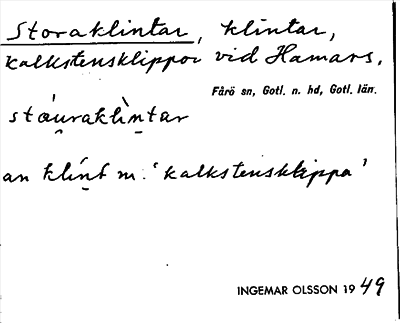 Storaklintar, klintar,
kalkstensklippor vid Hamars.
Fårö sn, Gotl. n. hd, Gotl. län.
stáu̯raklìn̯tar
an klín̯t m. 'kalkstensklippa'
INGEMAR OLSSON 1949